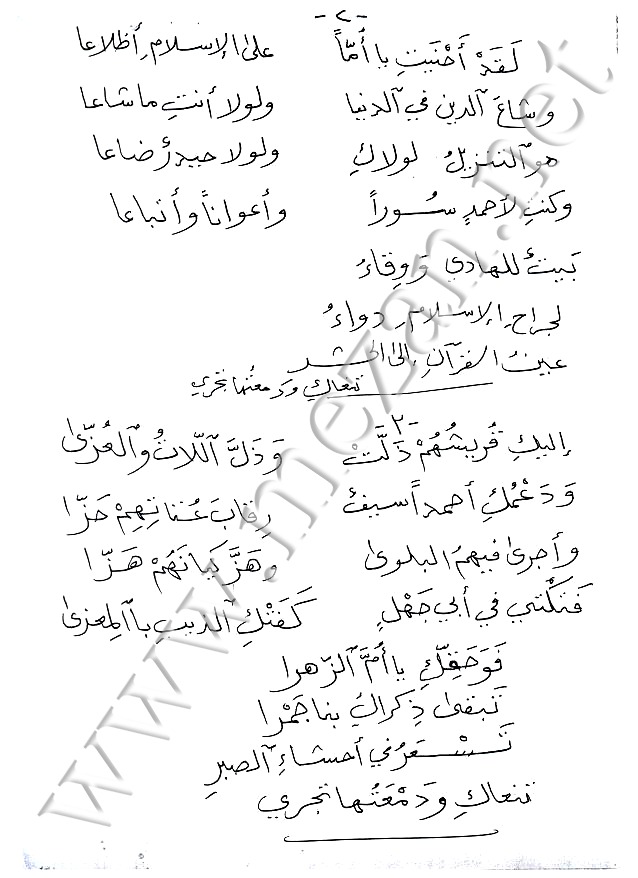 -٢-
لَقَدْ أَحْنَيتِ يا أُمّاً على الإسلامِ أظلاعا
وشاعَ الدين في الدنيا ولولا أنتِ ما شاعا
هو التنزيلُ لولاكِ ولولا حيدرٌ ضاعا
وكنتِ لأحمدٍ سوراً وأعواناً وأتباعا
بَيتٌ للهادي وَوِقاءُ
لجراحِ الإسلامِ دواءُ
عينُ القرآنِ إلى
تنعاكِ ودمعتُها تجري
-٢-
إليكِ قُريشُهُمْ ذَلَّتْ وَذَلَّ اللّاتُ والعُزّى
وَدَعْمُكِ أحمداً سيفٌ رِقابَ عُتاتِهِمْ حَزّا
وأجرى فيهمُ البلوى وهَزَّ كيانَهُمْ هَزّا
في أبي جَهْلٍ كَفَتْكِ الذيبِ بالمِعزى
فَوَحَقِّكِ يا أُمَّ الزّهرا
تَبقى ذِكراكِ بنا جَمْرا
تَسْعَرُ في أحشاءِ الصبرِ
تنعاكِ وَدَمْعَتُها تجري
www.imezan.net